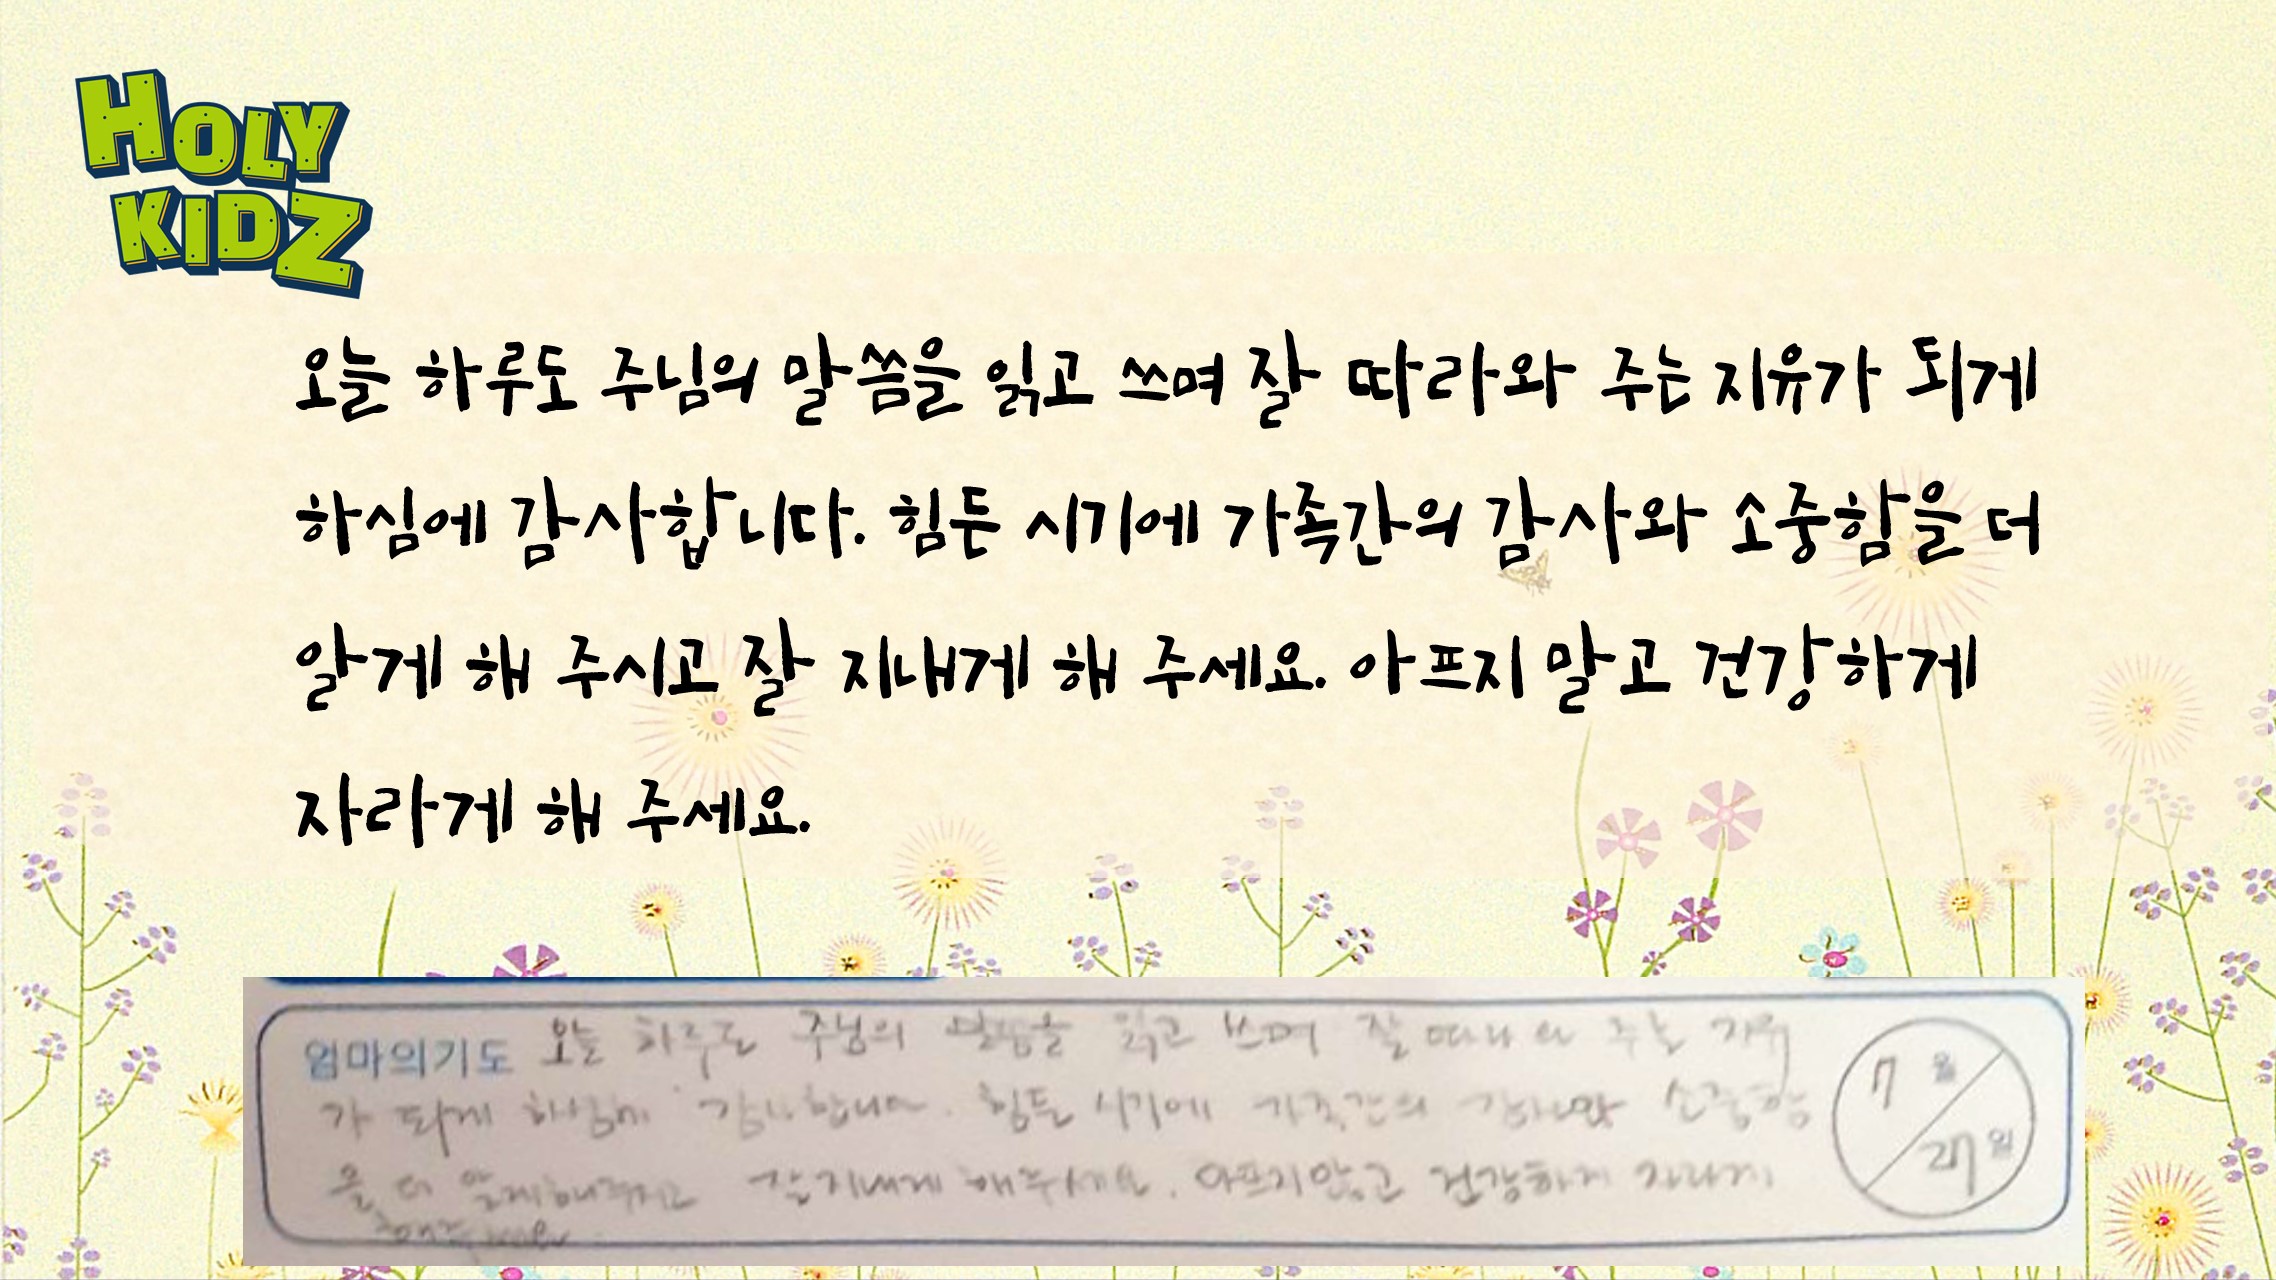 HOLY
KIDZ
오늘 하루도 주님의 말씀을 읽고 쓰며 잘 따라와 주는 지유가 되게
하심에 감사합니다. 힘든 시기에 가족간의 감사와 소중함을 더
알게 해 주시고 잘 지내게 해 주세요. 아프지 말고 건강하게
자라게 해 주세요.
엄마의기도 오늘 하루도 주님의 말씀을 읽고 쓰며 잘 따라와 주는 지유
가 되게 하심에 감사합니다. 힘든 시기에 가족간의 소중함
을 더 알게해주시고 잘 지내게 해주세요. 아프지않고 건강하게 자라게
해주세요
7월
27일